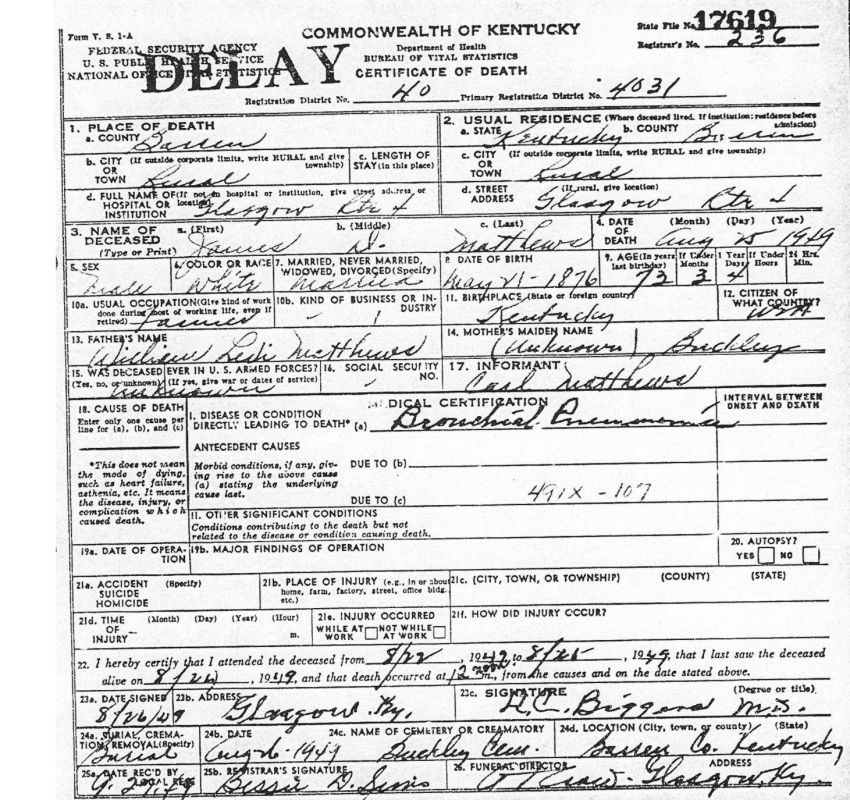 Form V. S. 1-A
FEDERAL SECURITY AGENCY
U. S. PUBLIC HEALTH SERVICE
NATIONAL OFFICE VITAL STATISTICS
DELAY
COMMONWEALTH OF KENTUCKY
Department of Health
BUREAU OF VITAL STATISTICS
CERTIFICATE OF DEATH
State File No. 17619
Registrar's No. 236
Registration District No. 40 Primary Registration District No. 4031
1. PLACE OF DEATH
a. COUNTY Barren
b. CITY (If outside corporate limits, write RURAL and give township)
OR
TOWN Rural
c. LENGTH OF STAY (in this place)
d. FULL NAME OF (If not in hospital or institution, give street address, or location)
HOSPITAL OR
INSTITUTION Glasgow Rte
2. USUAL RESIDENCE (Where deceased lived. If institution: residence before admission)
a. STATE Kentucky b. COUNTY Barren
c. CITY (If outside corporate limits, write RURAL and give township)
OR
TOWN Rural
d. STREET (If rural, give location)
ADDRESS Glasgow Rte
3. NAME OF DECEASED (Type or Print)
a. (First) James b. (Middle) D. c. (Last) Matthews
4. DATE OF DEATH (Month) (Day) (Year) Aug 25 1949
5. SEX Male
6. COLOR OR RACE White
7. MARRIED, NEVER MARRIED, WIDOWED, DIVORCED (Specify) Married
8. DATE OF BIRTH May 21-1876
9. AGE (In years last birthday) 73 If Under 1 Year Months 3 Days 4 If Under 24 Hrs. Hours Min.
10a. USUAL OCCUPATION (Give kind of work done during most of working life, even if retired) Farmer
10b. KIND OF BUSINESS OR INDUSTRY
11. BIRTHPLACE (State or foreign country) Kentucky
12. CITIZEN OF WHAT COUNTRY? USA
13. FATHER'S NAME William Levi Matthews
14. MOTHER'S MAIDEN NAME (Unknown) Buckley
15. WAS DECEASED EVER IN U. S. ARMED FORCES? (Yes, no, or unknown) (If yes, give war or dates of service) unknown
16. SOCIAL SECURITY NO.
17. INFORMANT Carl Matthews
18. CAUSE OF DEATH
Enter only one cause per line for (a), (b), and (c)
*This does not mean the mode of dying, such as heart failure, asthenia, etc. It means the disease, injury, or complication which caused death.
MEDICAL CERTIFICATION
INTERVAL BETWEEN ONSET AND DEATH
I. DISEASE OR CONDITION DIRECTLY LEADING TO DEATH* (a) Bronchial Pneumonia
ANTECEDENT CAUSES
Morbid conditions, if any, giving rise to the above cause (a) stating the underlying cause last.
DUE TO (b)
DUE TO (c)
491X - 107
II. OTHER SIGNIFICANT CONDITIONS
Conditions contributing to the death but not related to the disease or condition causing death.
19a. DATE OF OPERATION
19b. MAJOR FINDINGS OF OPERATION
20. AUTOPSY?
YES NO
21a. ACCIDENT (Specify)
SUICIDE
HOMICIDE
21b. PLACE OF INJURY (e.g., in or about home, farm, factory, street, office bldg. etc.)
21c. (CITY, TOWN, OR TOWNSHIP) (COUNTY) (STATE)
21d. TIME OF INJURY (Month) (Day) (Year) (Hour) m.
21e. INJURY OCCURRED
WHILE AT WORK NOT WHILE AT WORK
21f. HOW DID INJURY OCCUR?
22. I hereby certify that I attended the deceased from 8/22, 1949, to 8/25, 1949, that I last saw the deceased
alive on 8/24, 1949, and that death occurred at 12 noon m., from the causes and on the date stated above.
23a. DATE SIGNED 8/26/49
23b. ADDRESS Glasgow Ky.
23c. SIGNATURE (Degree or title) Biggers M.D.
24a. BURIAL, CREMATION, REMOVAL (Specify) Burial
24b. DATE Aug 26-1949
24c. NAME OF CEMETERY OR CREAMATORY Buckley Cem.
24d. LOCATION (City, town, or county) (State) Barren Co. Kentucky
25a. DATE REC'D BY LOCAL REG.
25b. REGISTRAR'S SIGNATURE Bessie D. Sims
26. FUNERAL DIRECTOR ADDRESS Glasgow Ky.